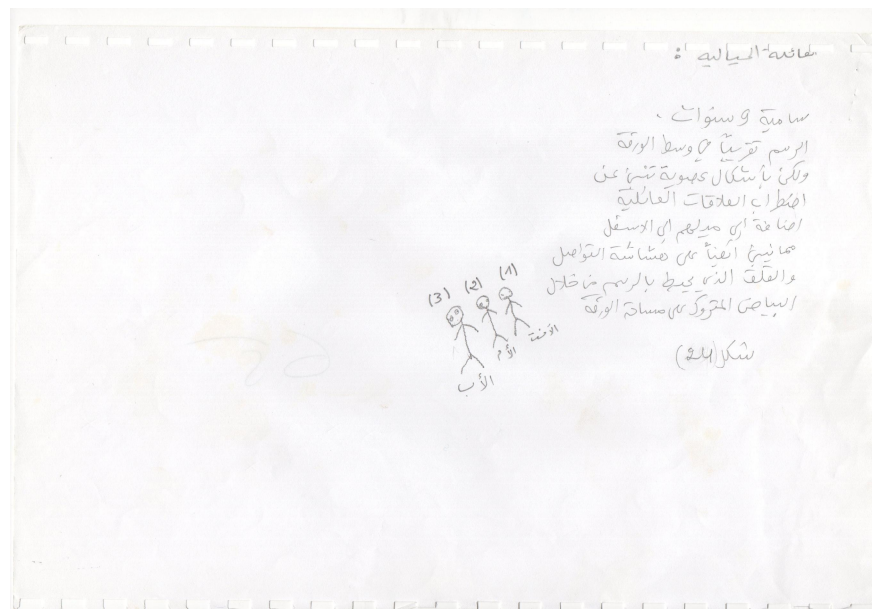 العائلة الخيالية :
سامية 9 سنوات .
الرسم تقريباً في وسط الورقة
ولكن بأشكال عصوية تنبئ عن
اضطراب العلاقات العائلية
اضافة إلى ميولهم إلى الاسفل
مما ينبئ أيضاً على هشاشة التواصل
والقلق الذي يحيط بالرسم من خلال
البياض المتروك على مساحة الورقة
(3) (2) (1)
الأب الأم الابنة
شكل (24)